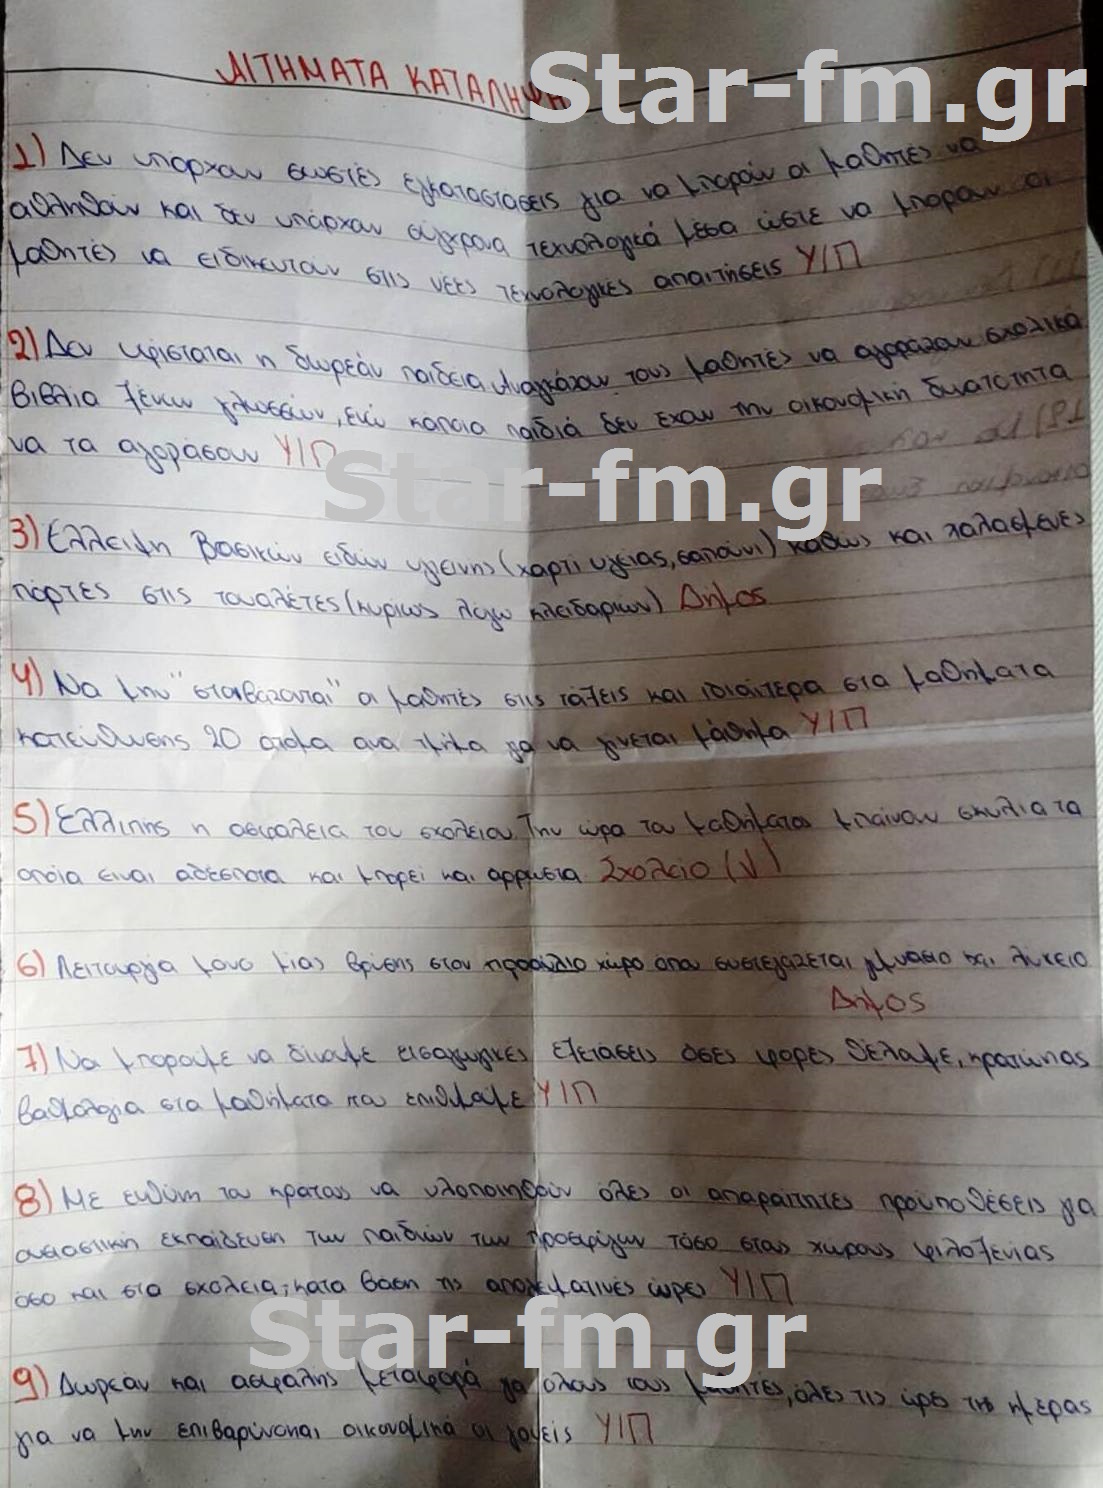 ΑΙΤΗΜΑΤΑ ΚΑΤΑΛΗΨΗ
Star-fm.gr
1) Δεν υπάρχουν σωστές εγκαταστάσεις για να μπορούν οι μαθητές να
αθληθούν και δεν υπάρχουν σύγχρονα τεχνολογικά μέσα ώστε να μπορουν οι
μαθητές να ειδικευτούν στις νέες τεχνολογικές απαιτήσεις Υ/Π
2) Δεν υφίσταται η δωρεάν παιδεια. Αναγκάζουν τους μαθητές να αγοραζουν σχολικά
βιβλία ξένων γλωσσών, ενώ κάποια παιδιά δεν εχουν την οικονομική δυνατότητα
να τα αγοράσουν Υ/Π
Star-fm.gr
3) Ελλειψη βασικών ειδών υγιεινης (χαρτι υγειας, σαπουνι) καθώς και χαλασμενες
πόρτες στις τουαλέτες (κυρίως λόγω κλειδαριων) Δημος
4) Να μην "στοιβαζονται" οι μαθητές στις τάξεις και ιδιαίτερα στα μαθηματα
κατεύθυνσης 20 ατομα ανα τμήμα για να γινεται μάθημα Υ/Π
5) Ελλιπης η ασφαλεια του σχολειου. Την ώρα του μαθηματος μπαίνουν σκυλια τα
οποία ειναι αδέσποτα και μπορεί και αρρωστα Σχολειο (√)
6) Λειτουργία μονο μίας βρύσης στον προαύλιο χώρο οπου συστεγαζεται γυμνασιο και λυκειο
Δημος
7) Να μπορουμε να δίνουμε εισαγωγικές εξετάσεις όσες φορες θέλουμε, κρατώντας
βαθμολογια στα μαθήματα που επιθυμούμε Υ/Π
8) Με ευθύνη του κρατους να υλοποιηθούν όλες οι απαραίτητες προϋποθέσεις για
ουσιαστική εκπαίδευση των παιδιών των προσφύγων τόσο στους χώρους φιλοξενίας
όσο και στα σχολεια, κατα βάση τις απογευματινές ώρες Υ/Π
Star-fm.gr
9) Δωρεάν και ασφαλης μεταφορά για όλους τους μαθητές, όλες τις ώρες της ημερας
για να μην επιβαρύνονται οικονομικά οι γονείς Υ/Π